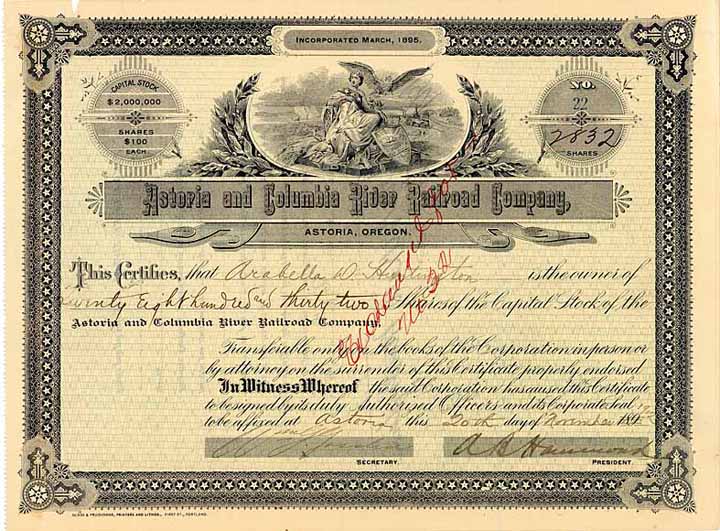 INCORPORATED MARCH, 1895.
CAPITAL STOCK
$2,000,000
SHARES
$100
EACH
NO.
22
2832
SHARES
Astoria and Columbia River Railroad Company,
ASTORIA, OREGON.
This Certifies, that Arabella D. Huntington is the owner of
Twenty Eight hundred and thirty two Shares of the Capital Stock of the
Astoria and Columbia River Railroad Company,
Transferable only on the books of the Corporation in person or
by attorney on the surrender of this Certificate properly endorsed
In Witness Whereof the said Corporation has caused this Certificate
to be signed by its duly Authorised Officers and its Corporate Seal
to be affixed at Astoria this 20th day of November 189
SECRETARY.
A B Hammond
PRESIDENT.
PRINTERS AND LITHOS., FIRST ST., PORTLAND.